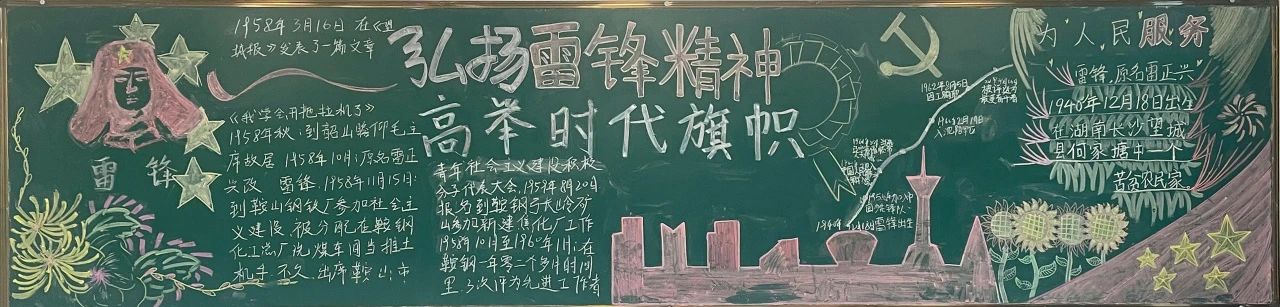 1958年3月16日在《望
城报》发表了一篇文章
《我学会开拖拉机了》
1958年秋,到韶山瞻仰毛主
席故居 1958年10月:原名雷正
兴改 雷锋.1958年11月15日:
到鞍山钢铁厂参加社会主
义建设.被分配在鞍钢
化工总厂洗煤车间当推土
机手 不久.出席鞍山市
雷锋
弘扬雷锋精神
高举时代旗帜
青年社会主义建设积极
分子代表大会,1959年8月20日
报名到鞍钢弓长岭矿
山参加新建焦化厂工作
1958年10月至1960年1月:在
鞍钢一年零二个多月时间
里,3次评为先进工作者
1962年8月15日
因工殉职
雷锋出生
为人民服务
雷锋,原名雷正兴
1940年12月18日出生
在湖南长沙望城
县何家塘中一个
苦贫农民家。